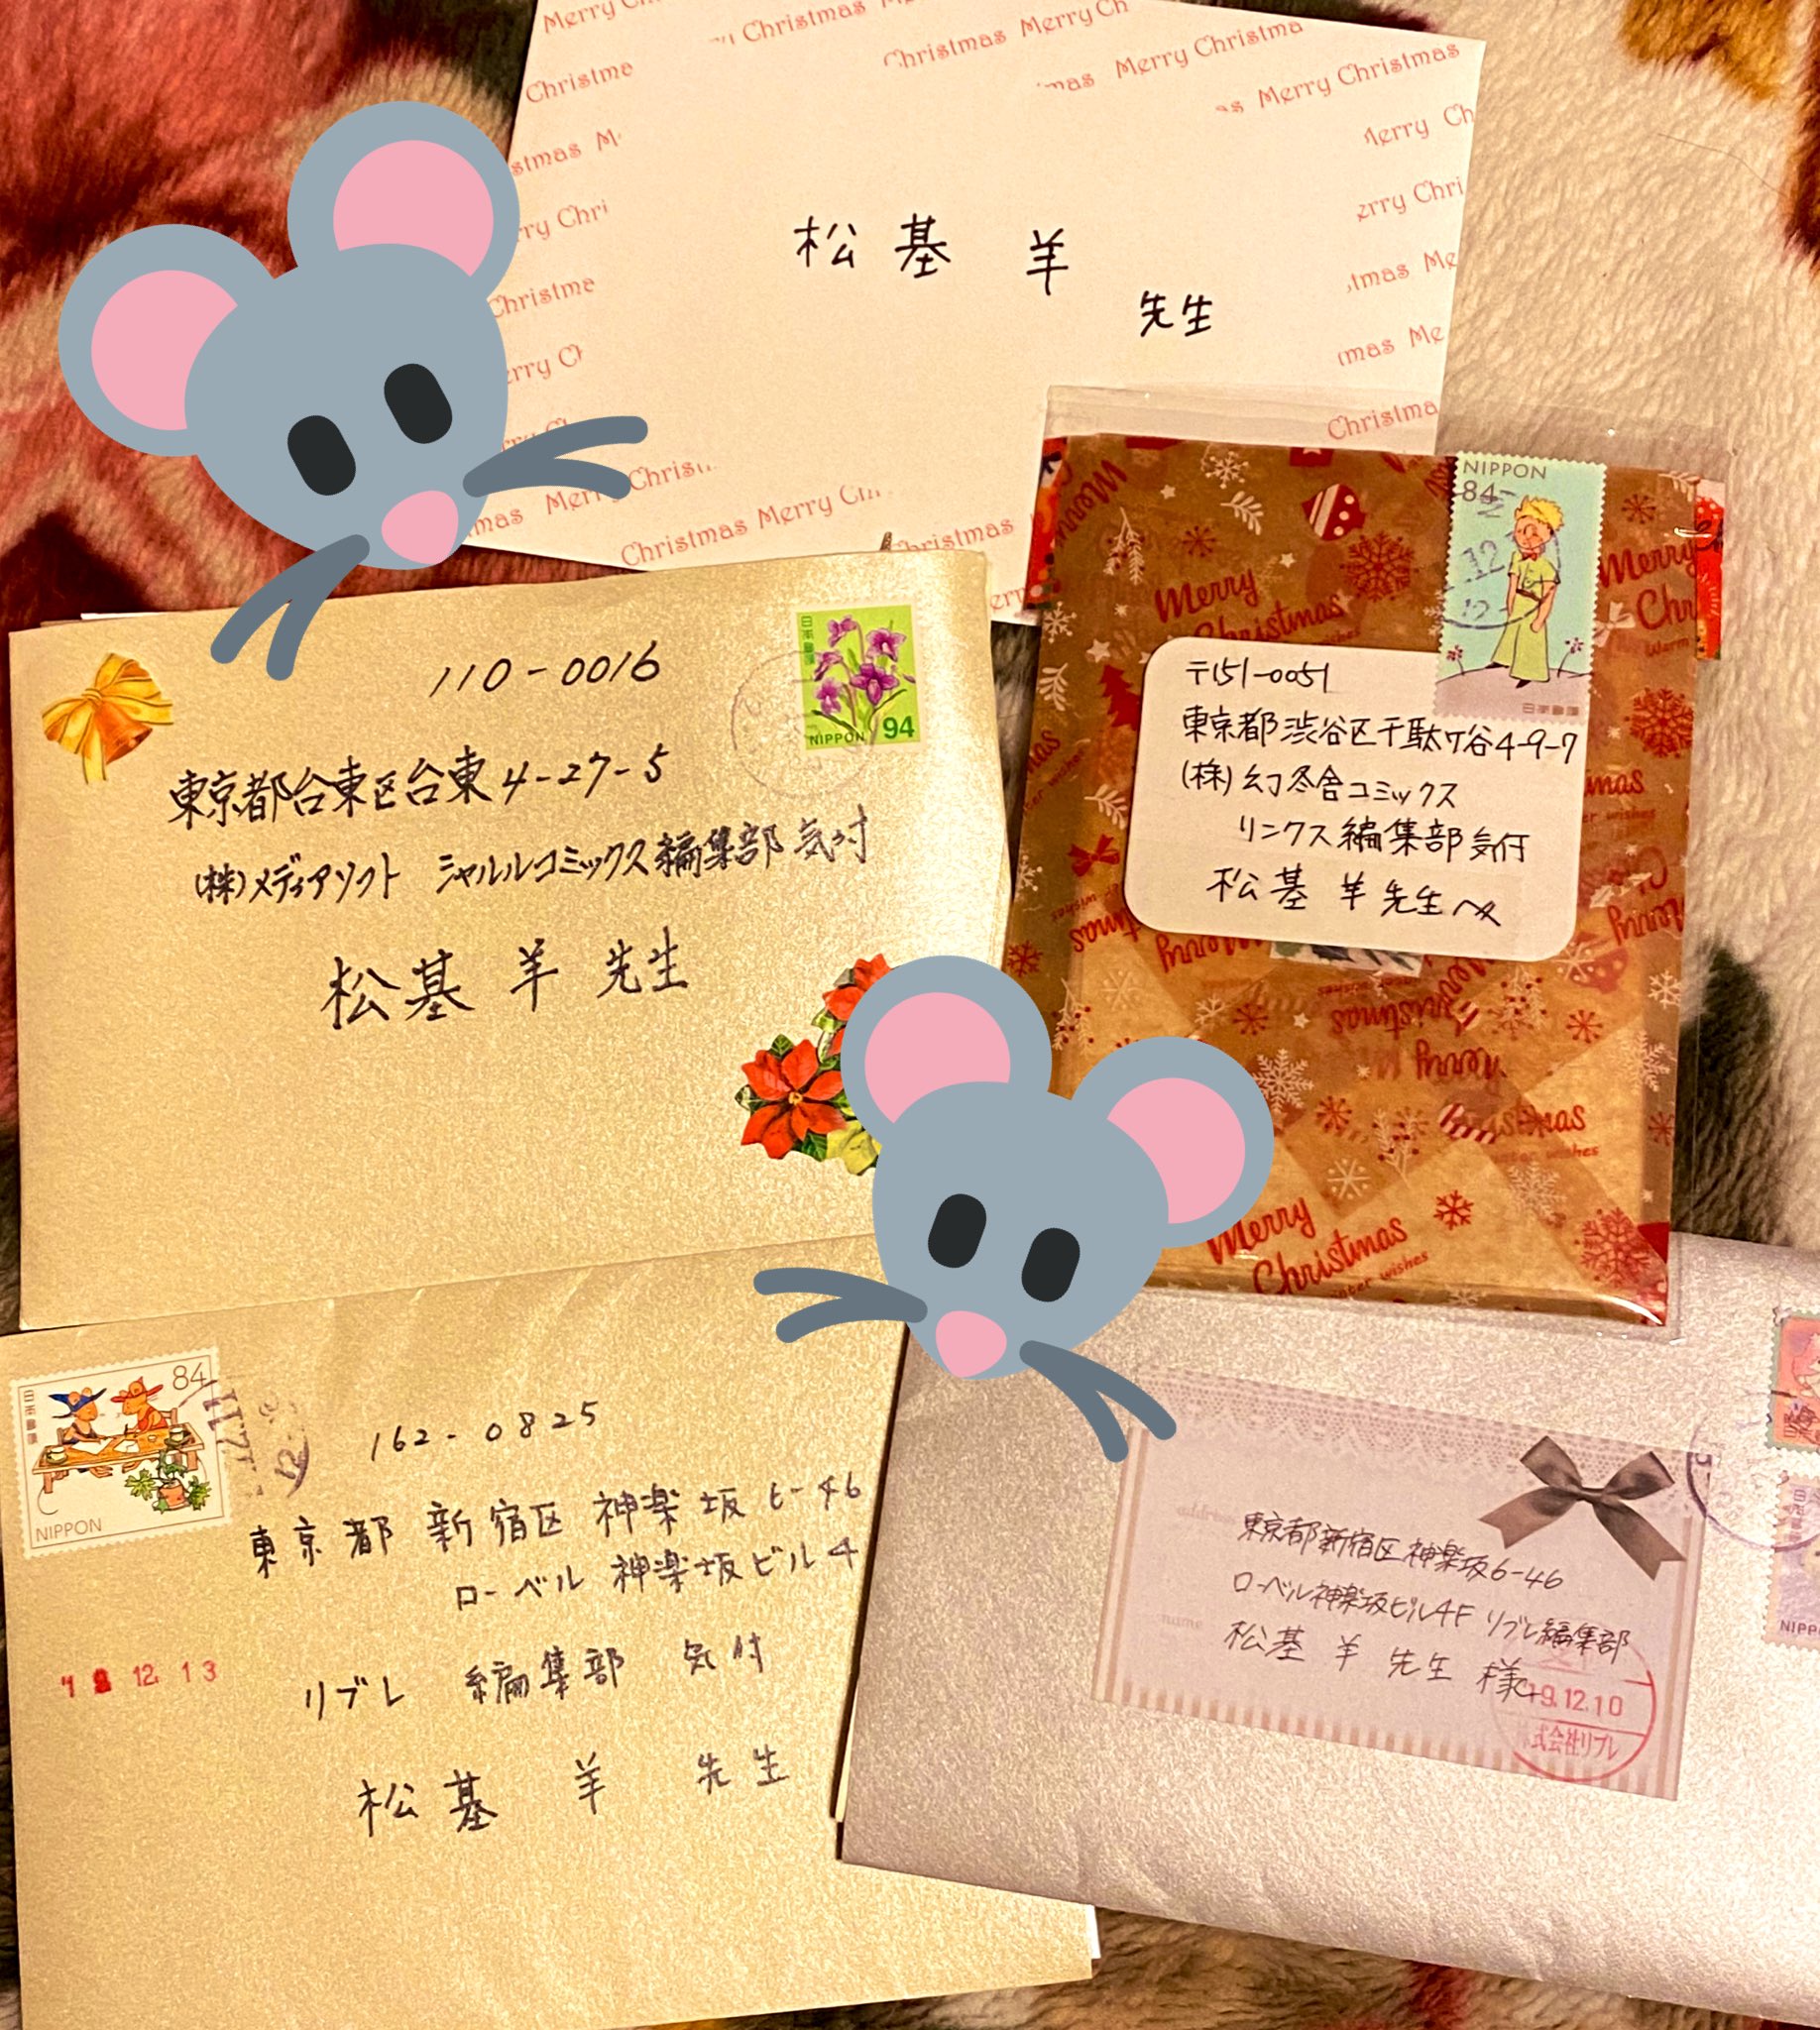 Merry Christmas
松基 羊
先生
110-0016
日本郵便
NIPPON 94
東京都台東区台東4-27-5
(株)メディアソフト シャルルコミックス編集部 気付
松基 羊 先生
NIPPON
84
日本郵便
〒151-0051
東京都渋谷区千駄ヶ谷4-9-7
(株)幻冬舎コミックス
リンクス編集部気付
松基 羊 先生へ
Merry
Christmas
84
日本郵便
NIPPON
162-0825
東京都 新宿区 神楽坂 6-46
ローベル 神楽坂ビル4
12. 13
リブレ 編集部 気付
松基 羊 先生
address
東京都新宿区神楽坂6-46
ローベル神楽坂ビル4F リブレ編集部
name
松基 羊 先生 様
9.12.10
株式会社リブレ